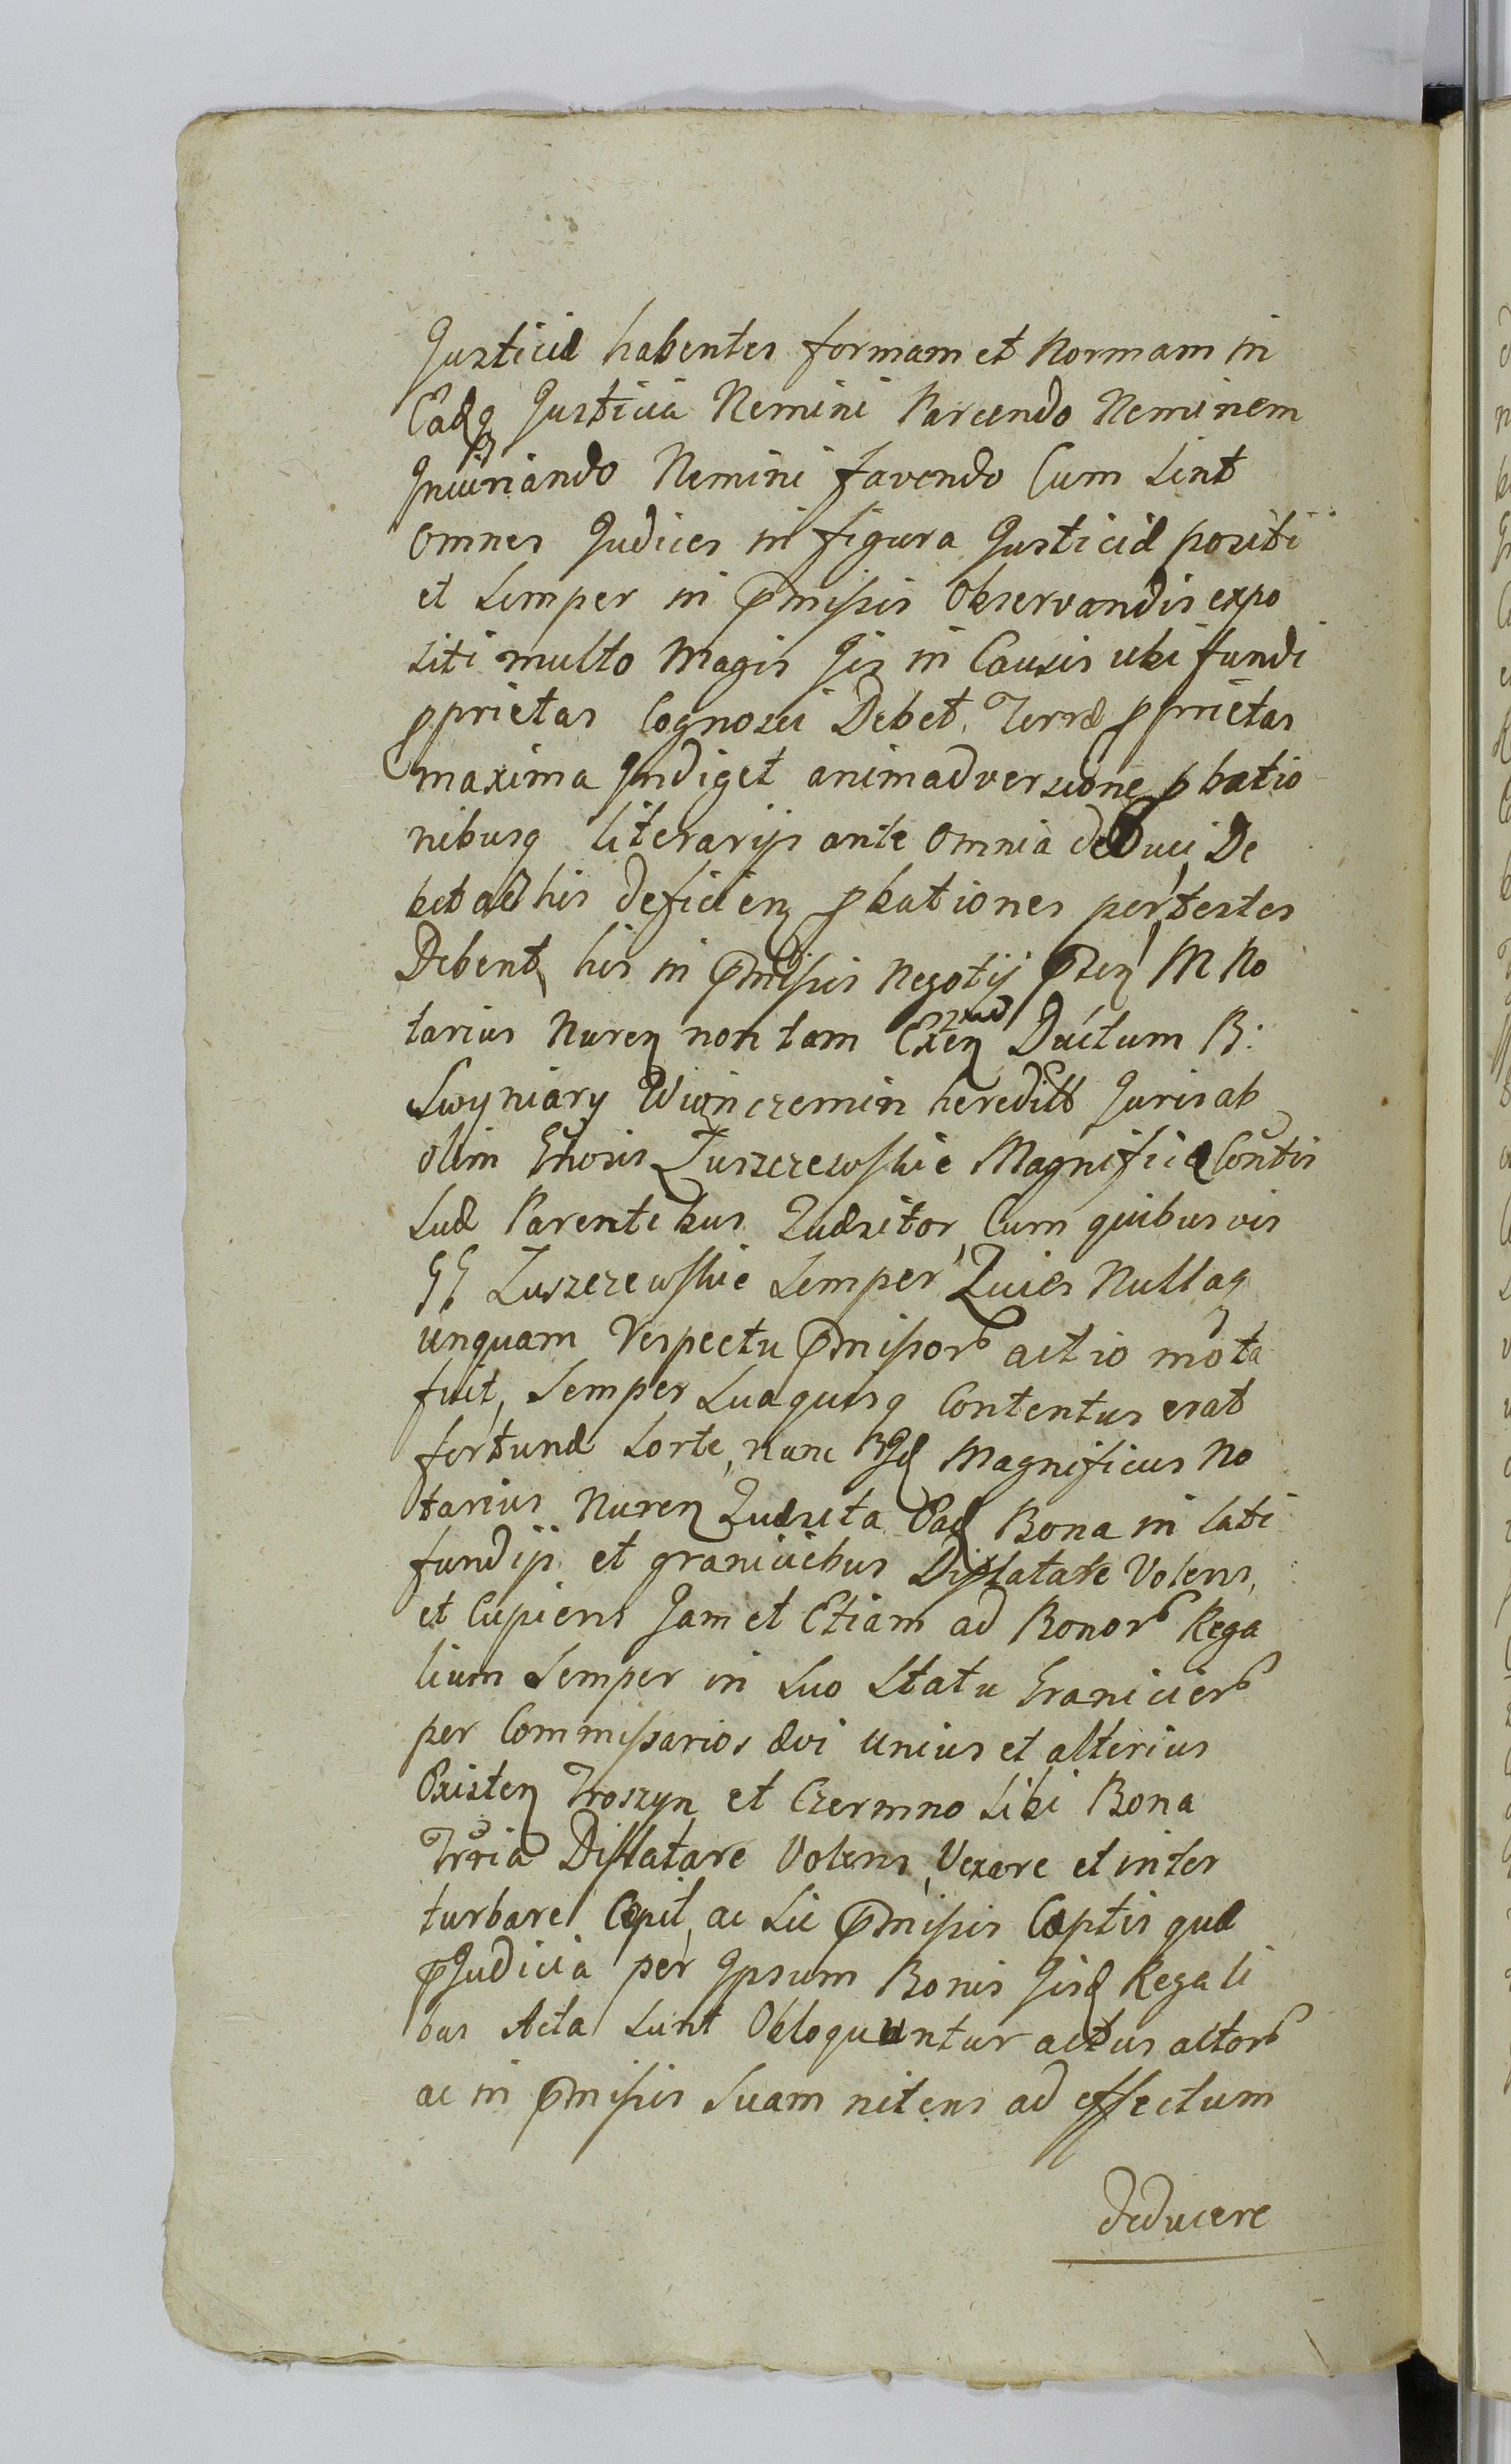 Justiciæ habentes formam et Normam in
Eadq Justicia Nemini Parcendo Neminem
Iniuriando Nemini favendo Cum sint
omnes Judices in figura Justiciæ positi
et semper in pmissis observandis expo
siti multo magis Jis in Causis ubi fundi
pprietas Cognosci Debet, Terræ pprietas
maxima Indiget animadversione pbatio
nibusq literarijs ante omnia deduci De
bet ast his deficien pbationes per testes
Debent, his in pmissis Negotij pten M No
tarius Nuren non tam Exten Ductum B:
Swyniary Wwinczemin hereditt Juris ab
olim Gnosis Zuszczewskie Magnificæ Contis
suæ Parentibus Quæsitor, Cum quibusvis
GG Zuszczewskie semper Quies Nullaq
unquam Respectu pmissor actio mota
fuit, semper sua quisq Contentus erat
fortunæ sorte, nunc Magnificus No
tarius Nuren Quæsita Ead Bona in lati
fundijs et graniciebus Dislatate Volens,
et Cupiens Jam et Etiam ad Bonor Rega
lium semper in suo statu Granicier
per Commissarios ævi unius et alterius
Existen Troszyn et Czermno sibi Bona
Trria Dislatare Volens, Vexare et inter
turbare Cæpit, ac sic pmissis Cæptis quæ
pJudicia per Ipsum Bonis Jisd Regali
bus Acta sunt Obloquuntur actus actor
ac in pmissis suam nitens ad effectum
deducere